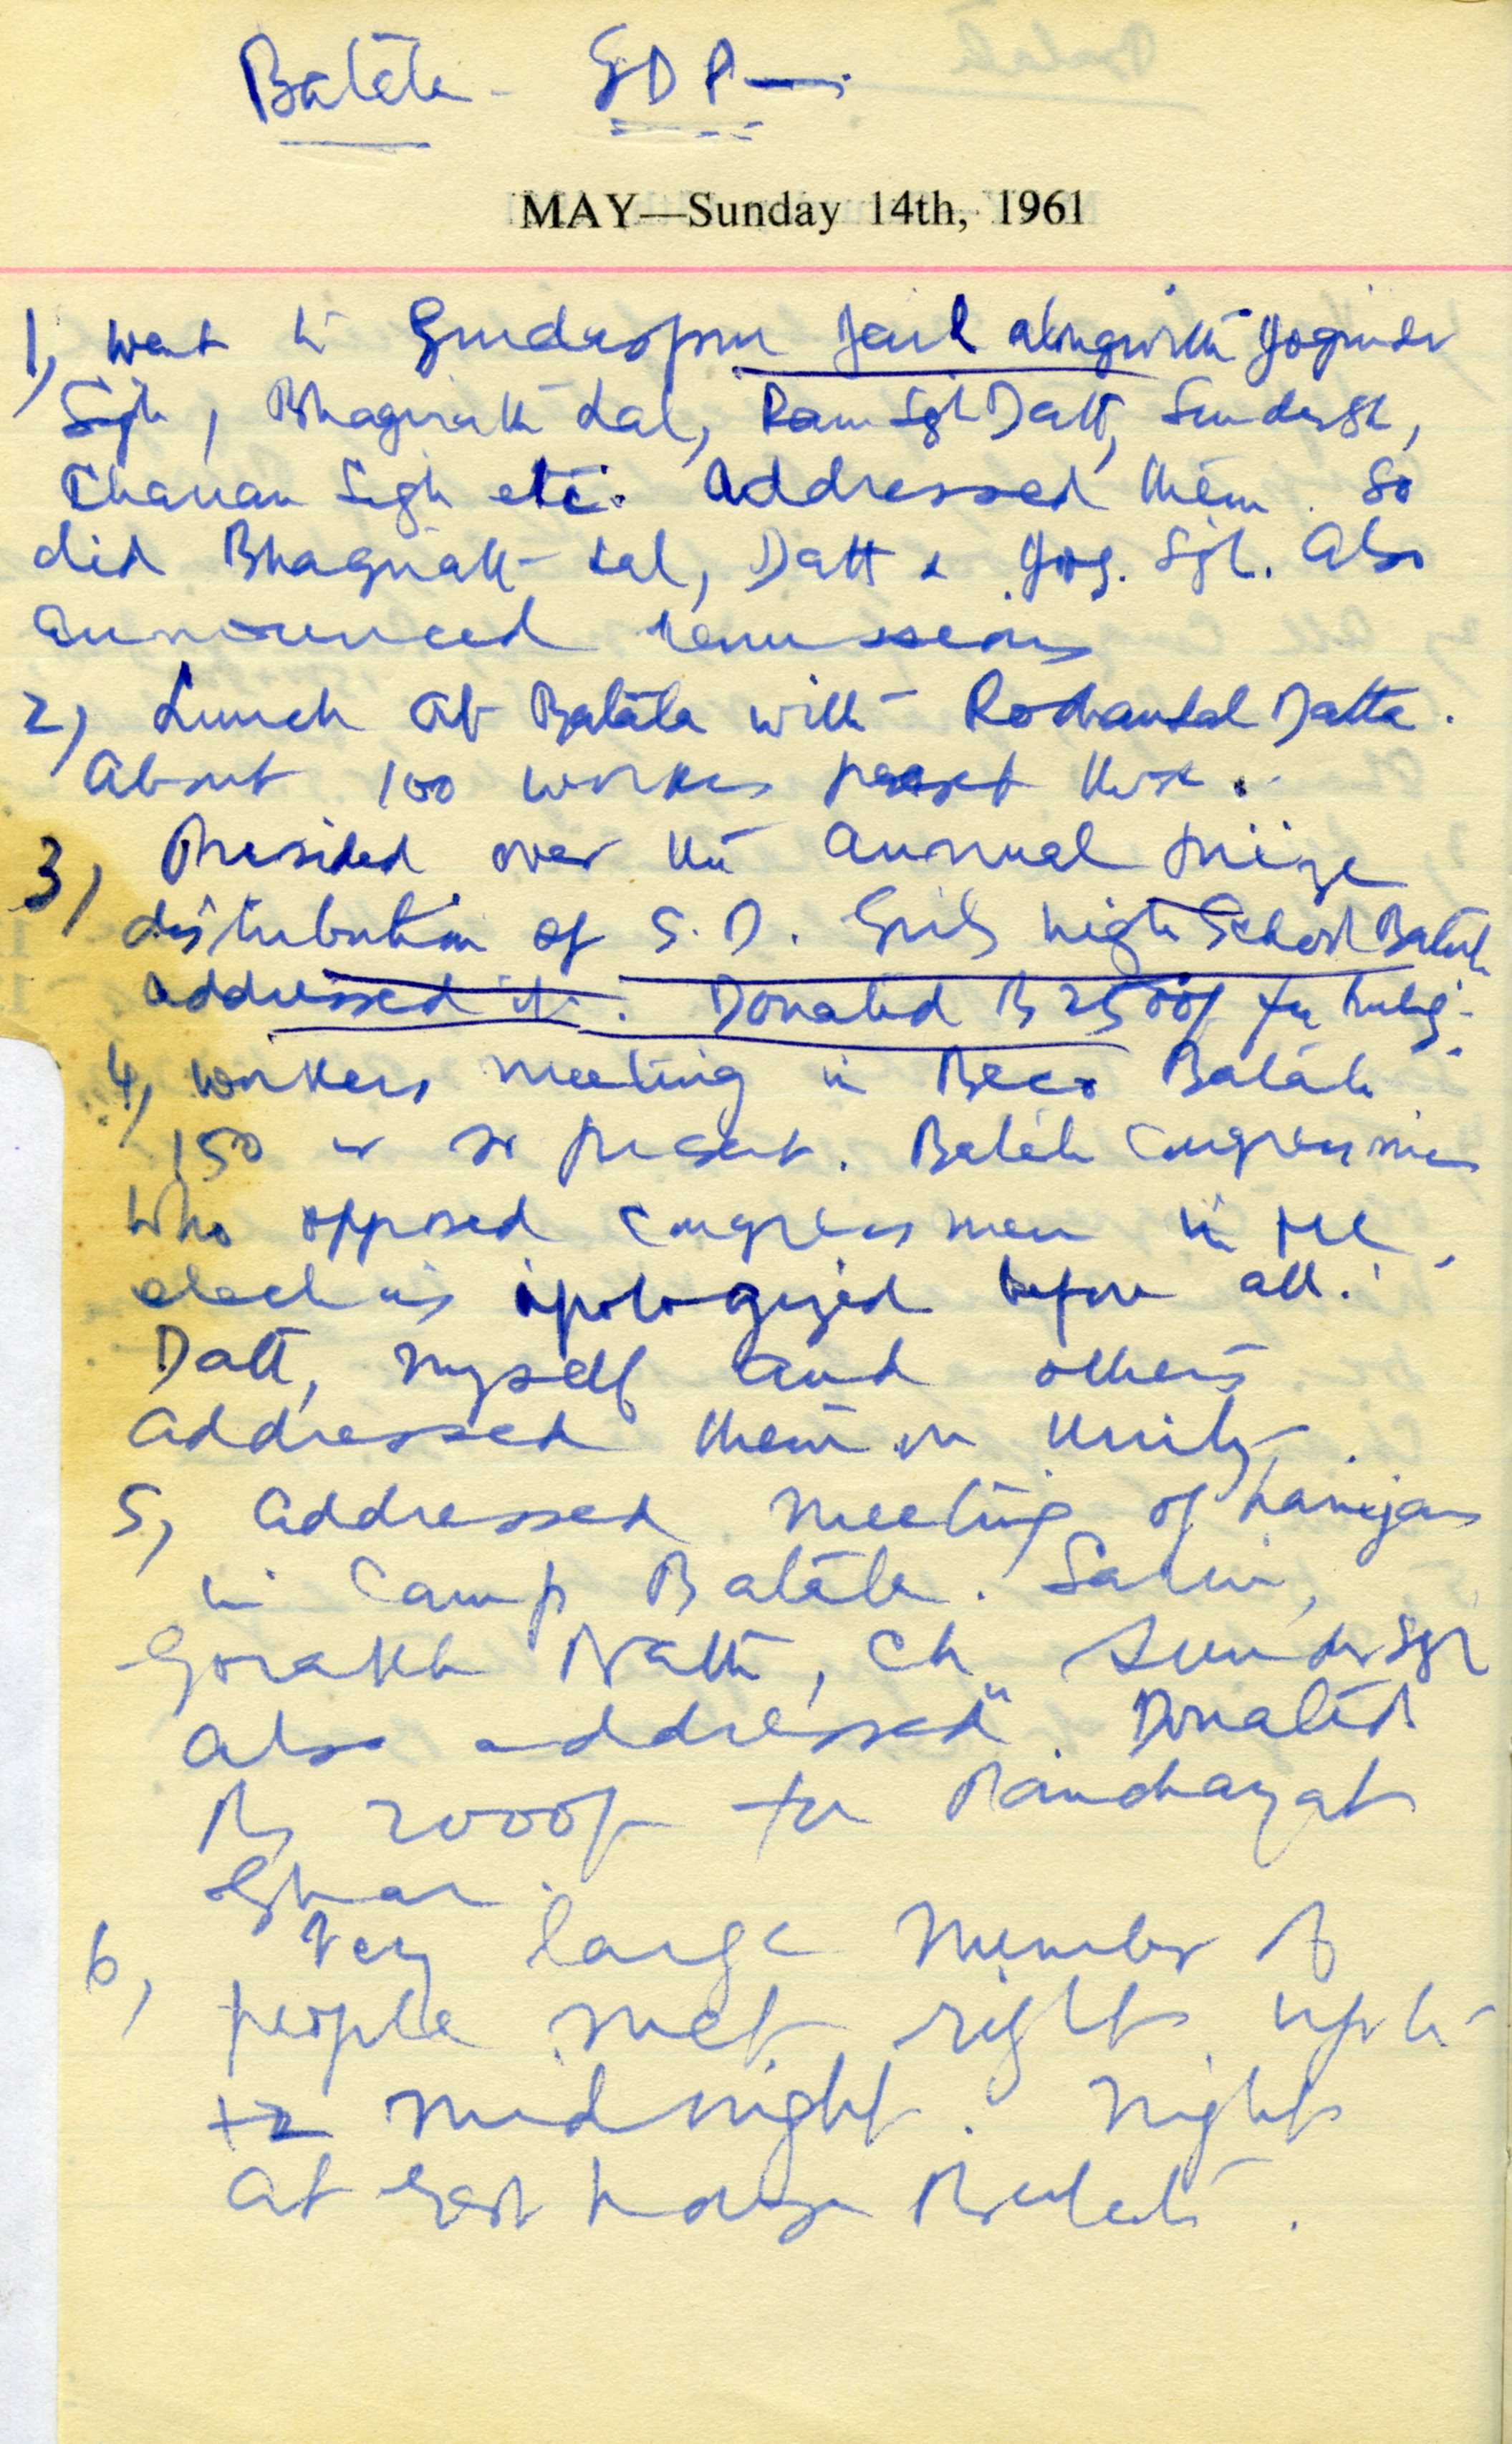 Batala - GDP
MAY—Sunday 14th, 1961
1, went to Gurdaspur Jail alongwith Joginder
Sigh, Bhagirath Lal, Ram Sgh Datt, Sundersgh,
Chanan Sigh etc. Addressed them. So
did Bhagirath Lal, Datt & Jog. Sgh. Also
announced remissions
2, Lunch at Batala with Roshanlal Datta.
About 100 workers present there.
3, Presided over the annual prize
distribution of S.D. Girls high School Batala
addressed it. Donated Rs 2500/ for
4, workers meeting in Beco Batala
150 or so present. Batala Congressmen
who opposed Congressmen in MC
elections apologized before all.
Datt, myself and others
addressed them on Unity.
5, Addressed meeting of harijans
in Camp Batala.
Gorakh Nath, Ch Sundersgh
also addressed. Donated
Rs 2000/ for Panchayat
Ghar.
6, Very large number of
people met right upto
midnight. Night
at Rest house Batala.